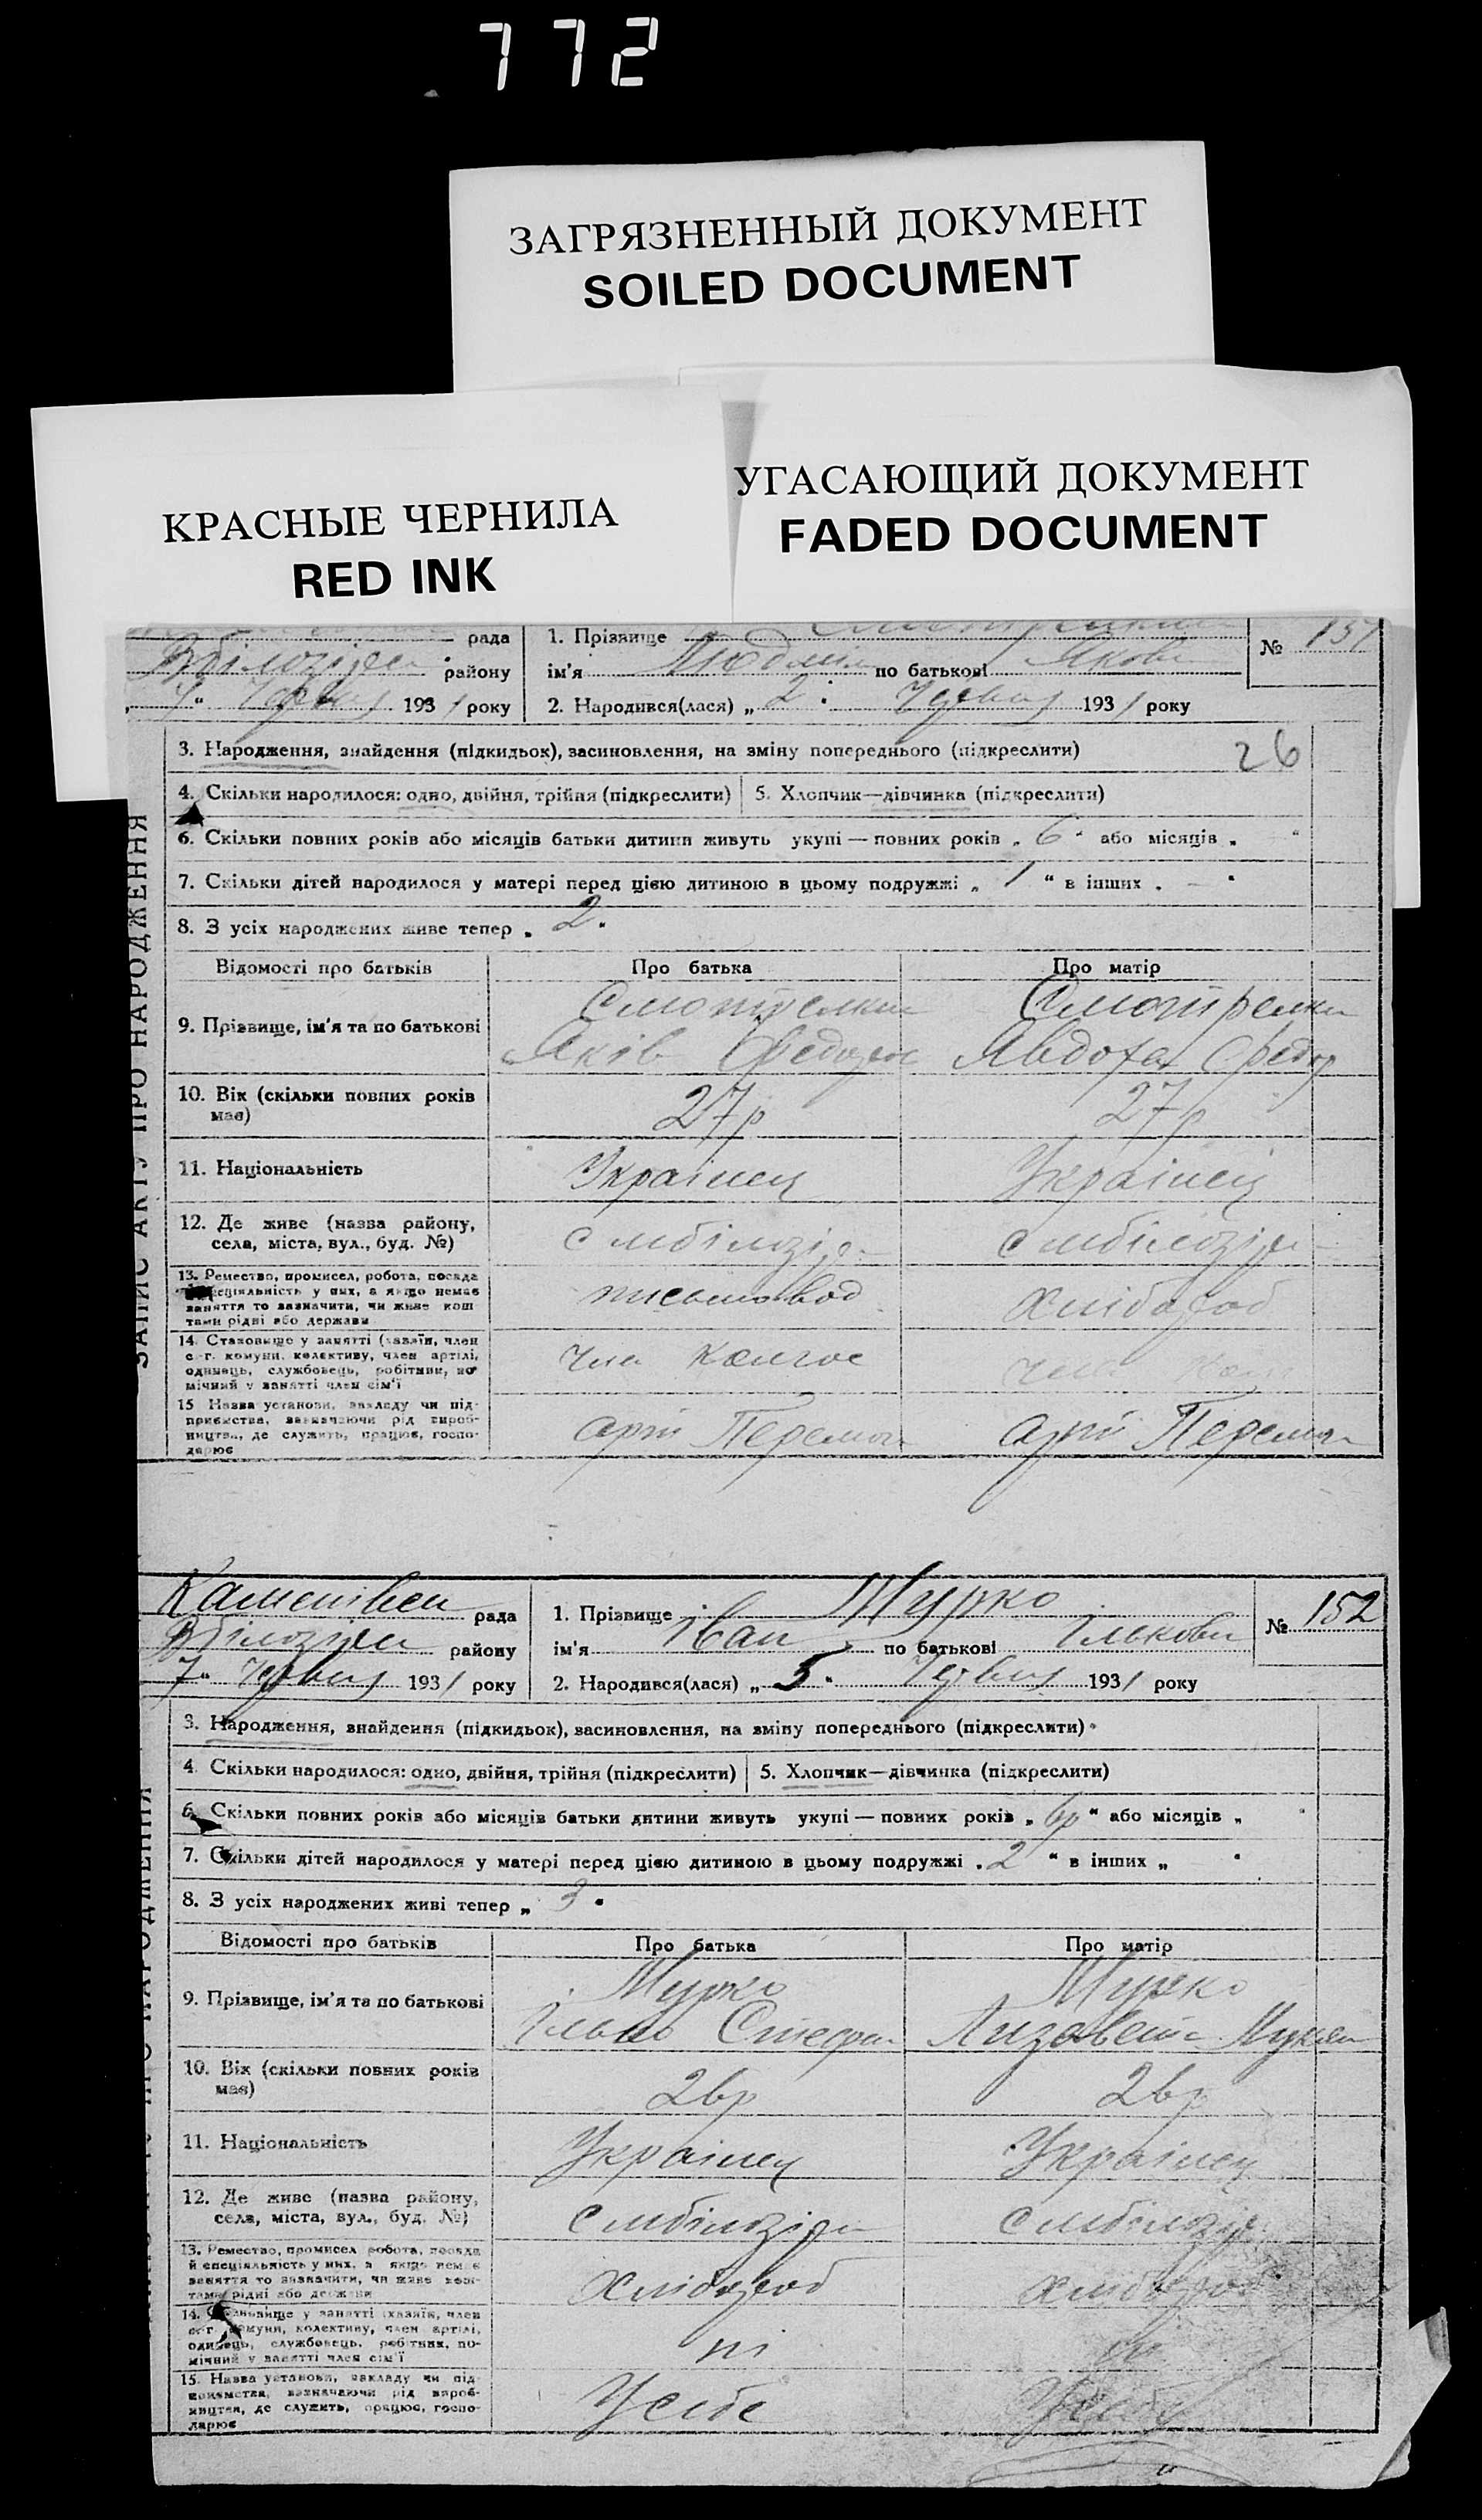 772
ЗАГРЯЗНЕННЫЙ ДОКУМЕНТ
SOILED DOCUMENT
КРАСНЫЕ ЧЕРНИЛА
RED INK
УГАСАЮЩИЙ ДОКУМЕНТ
FADED DOCUMENT
рада
району
193 1 року
1. Прізвище
ім'я по батькові
2. Народився(лася) „ 2 " 193 1 року
№ 151
3. Народження, знайдення (підкидьок), засиновлення, на зміну попереднього (підкреслити)
26
4. Скільки народилося: одно, двійня, трійня (підкреслити)
5. Хлопчик—дівчинка (підкреслити)
6. Скільки повних років або місяців батьки дитини живуть укупі — повних років „ 6 " або місяців „ "
7. Скільки дітей народилося у матері перед цією дитиною в цьому подружжі „ 1 " в інших „ — "
8. З усіх народжених живе тепер „ 2 "
Відомості про батьків
Про батька
Про матір
9. Прізвище, ім'я та по батькові
Яків
Явдоха Федор
10. Вік (скільки повних років має)
27 р
27 р
11. Національність
Українец
Українец
12. Де живе (назва району, села, міста, вул., буд. №)
13. Ремество, промисел, робота, посада
спеціяльність у них, а якщо немає
заняття то зазначити, чи живе кош
тами рідні або держави
письмовод
Хлібороб
14. Становище у занятті (хазяїн, член
с.-г. комуни, колективу, член артілі,
одинець, службовець, робітник, по
мічний у занятті член сім'ї
член колгос
15 Назва установи, закладу чи під-
приємства, зазначаючи рід вироб-
ництва, де служить, працює, госпо-
дарює
арт Перемог
арт Перемог
ЗАПИС АКТУ ПРО НАРОДЖЕННЯ
Каменівсн рада
району
7 " Червня 193 1 року
1. Прізвище Мурко
ім'я Іван по батьковіІлькови
2. Народився(лася) „ 5 " Червня 193 1 року
№ 152
3. Народження, знайдення (підкидьок), засиновлення, на зміну попереднього (підкреслити)
4. Скільки народилося: одно, двійня, трійня (підкреслити)
5. Хлопчик—дівчинка (підкреслити)
6. Скільки повних років або місяців батьки дитини живуть укупі — повних років „ 6р " або місяців „ "
7. Скільки дітей народилося у матері перед цією дитиною в цьому подружжі „ 2 " в інших „ "
8. З усіх народжених живі тепер „ 3 "
Відомості про батьків
Про батька
Про матір
9. Прізвище, ім'я та по батькові
Мурко
Ілько Стефан
Мурко
Лизавета
10. Вік (скільки повних років має)
26р
26р
11. Національність
Українец
Українец
12. Де живе (назва району, села, міста, вул., буд. №)
13. Ремество, промисел робота, посада
й спеціяльність у них, а якщо немає
заняття то зазначити, чи живе кош-
тами рідні або держави
Хлібороб
Хлібороб
14. Становище у занятті (хазяїн, член
с.-г. комуни, колективу, член артілі,
одинець, службовець, робітник, по-
мічний у занятті член сім'ї
ні
ні
15. Назва установи, закладу чи під
приємства, зазначаючи рід вироб-
ництва, де служить, працює, госпо-
дарює
У себе
У себе